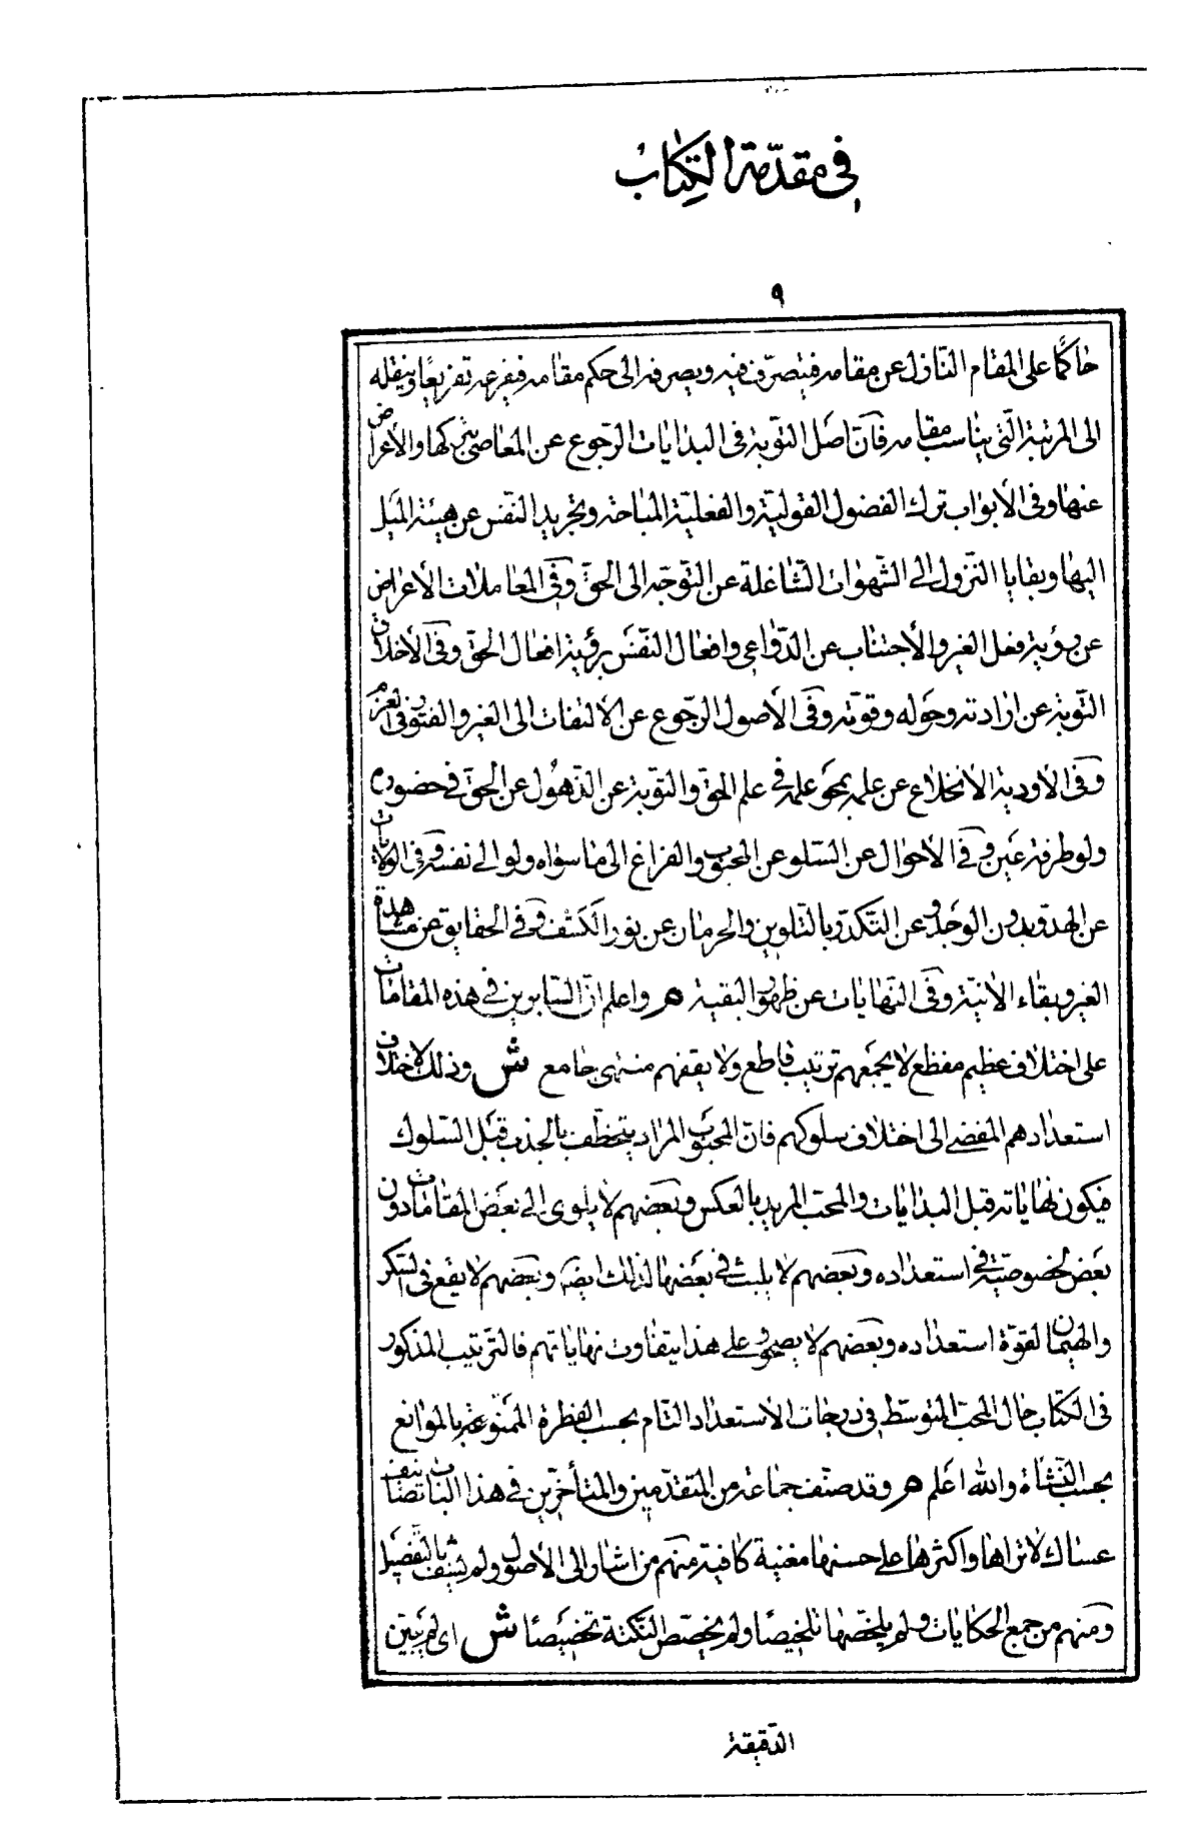 في مقدّمة الكتاب
٩
حاكمًا على المقام النازل عن مقامه فيتصرّف فيه ويصرفه الى حكم مقامه فيفرعه تفريعًا وينقله
الى المرتبة الّتي يناسب مقامه فانّ اصل التّوبة في البدايات الرّجوع عن المعاصي بتركها والاعراض
عنها وفي الأبواب ترك الفضول القوليّة والفعليّة المباحة وتجريد النّفس عن هيئة الميل
اليها وبقايا النّزول الى الشّهوات الشّاغلة عن التّوجّه الى الحقّ وفي المعاملات الأعراض
عن رؤية فعل الغير والأجتناب عن الدّواعي وافعال النّفس برؤية افعال الحقّ وفي الأخلاق
التّوبة عن ارادته وحوله وقوّته وفي الأصول الرّجوع عن الالتفات الى الغير والفتور في العزم
وفي الأودية الأنخلاع عن علمه بمحو علمه في علم الحقّ والتّوبة عن الذّهول عن الحقّ في حضوره
ولو طرفة عين وفي الأحوال عن السّلو عن المحبوب والفراغ الى ما سواه ولو الى نفسه وفي الولايات
عن الهدو بدون الوجد وعن التكدّر بالتلوين والحرمان عن نور الكشف وفي الحقايق عن مشاهدة
الغير وبقاء الأنيّة وفي النّهايات عن ظهور البقية هر واعلم انّ السّايرين في هذه المقامات
على اختلاف عظيم مفظع لا يجمعهم ترتيب قاطع ولا يقفهم منتهى جامع ش وذلك لاختلاف
استعدادهم المفضي الى اختلاف سلوكهم فانّ المحبوب المراد يتخطّف بالجذب قبل السّلوك
فيكون نهاياته قبل البدايات والمحبّ المريد بالعكس وبعضهم لا يلوى الى بعض المقامات دون
بعض لخصوصيّة في استعداده وبعضهم لا يلبث في بعضها لذلك ايضه وبعضهم لا يقع في السّكر
والهيمان لقوّة استعداده وبعضهم لا يصحو وعلى هذا يتفاوت نهاياتهم فالتّرتيب المذكور
في الكتاب حال المحبّ المتوسّط في درجات الأستعداد التام بحسب الفطرة الممنوّ عنه بالموانع
بحسب النّشأة والله اعلم هر وقد صنّف جماعة من المتقدّمين والمتأخّرين في هذا الباب تصانيف
عساك لا تراها واكثرها على حسنها مغنية كافية منهم من اشار الى الأصول ولم يشف بالتّفصيل
ومنهم من جمع الحكايات ولم يلخّصها تلخيصًا ولم يخصّص النّكتة تخصيصًا ش اى لم يبيّن
الدّقيقة